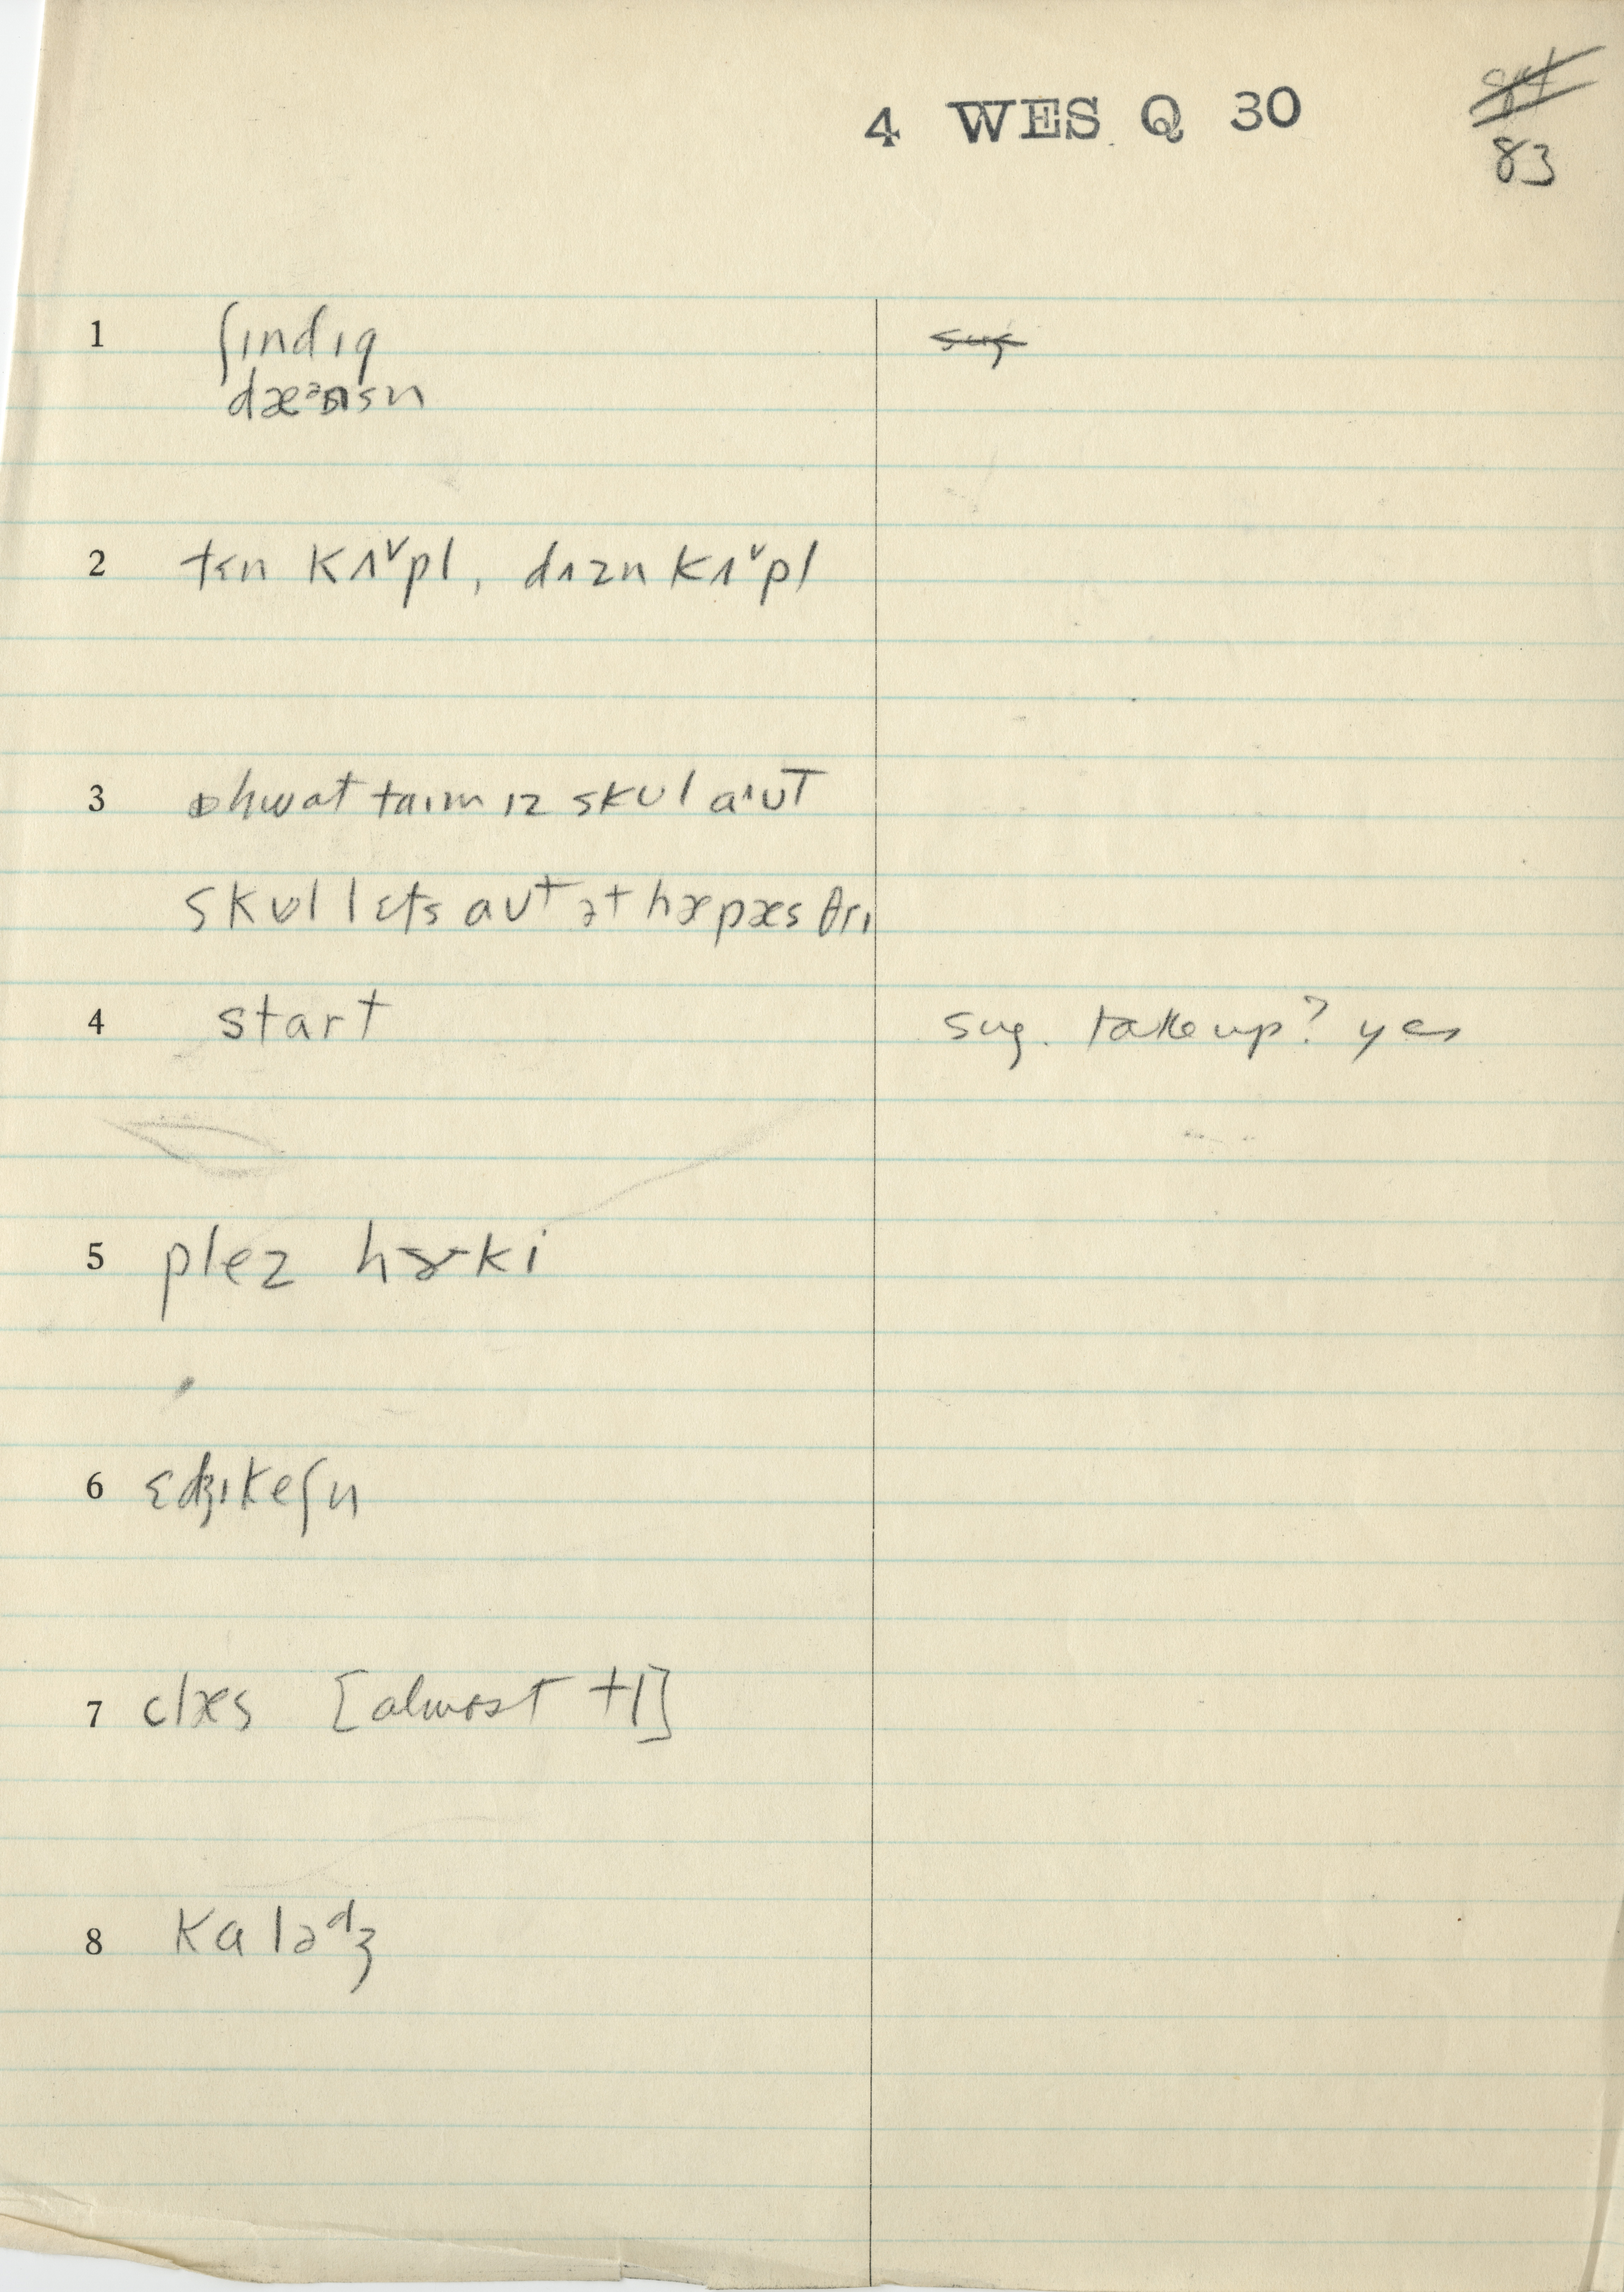 4 WES Q 30
83
1 ʃɪndɪg
2 tɛn kʌ˅pl, dʌzn kʌ˅pl
3 hwat taɪm ɪz skul aˈʊt
skʊl lɛts aʊt ət hæpæs θrɪ
4 start sug. take up? yes
5 plez hɝki
6 ɛdʒɪkeʃn
7 clæs [almost tl]
8 kaləᵈʒ